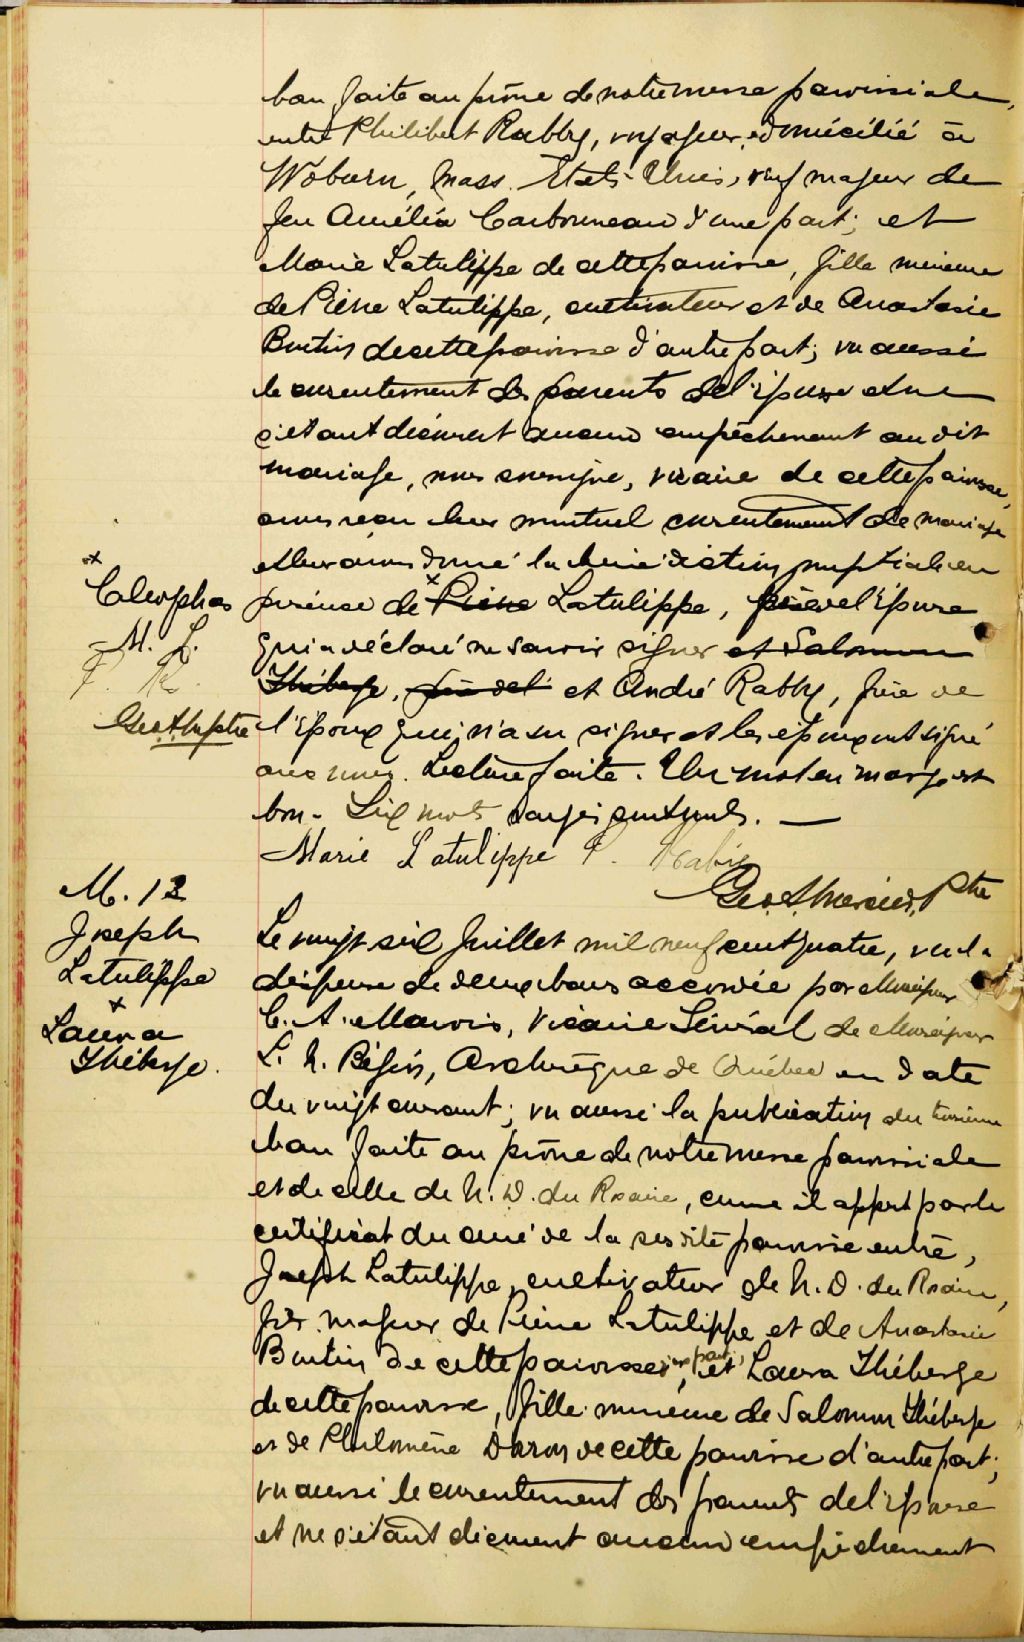 ban faite au prône de notre messe paroissiale,
entre Philibert Rabby, voyageur, domicilié à
Woburn, Mass. Etats-Unis, veuf majeur de
feu Amélia Carbonneau d'une part; et
Marie Latulippe de cette paroisse, fille mineure
de Pierre Latulippe, cultivateur et de Anastasie
Boutin de cette paroisse d'autre part; vu aussi
le consentement des parents de l'épouse et ne
s'étant découvert aucun empêchement au dit
mariage, nous soussigné, vicaire de cette paroisse,
avons reçu leur mutuel consentement de mariage
et leur avons donné la bénédiction nuptiale en
x
Cléophas
présence de x Pierre Latulippe, père de l'épouse
M. L.
qui a déclaré ne savoir signer et Salomon
P. R.
Théberge, père de l' et André Rabby, frère de
l'époux qui n'a su signer et les époux ont signé
avec nous. Lecture faite. Un mot en marge est
bon. Six mots rayés sont nuls. —
Marie Latulippe P. Rabby
Ptre
M. 12
Joseph
Latulippe
x
Laura
Théberge.
Le vingt six Juillet mil neuf cent quatre, vu la
dispense de deux bans accordée par Monseigneur
C. A. Marois, Vicaire Général de Monseigneur
L. N. Bégin, Archevêque de Québec en date
du vingt courant; vu aussi la publication du troisième
ban faite au prône de notre messe paroissiale
et de celle de N. D. du Rosaire, comme il appert par le
certificat du curé de la susdite paroisse entre,
Joseph Latulippe, cultivateur de N. D. du Rosaire,
fils majeur de Pierre Latulippe et de Anastasie
Boutin de cette paroisse d'une part, et Laura Théberge
de cette paroisse, fille mineure de Salomon Théberge
et de Philomène Doron de cette paroisse d'autre part;
vu aussi le consentement des parents de l'épouse
et ne s'étant découvert aucun empêchement